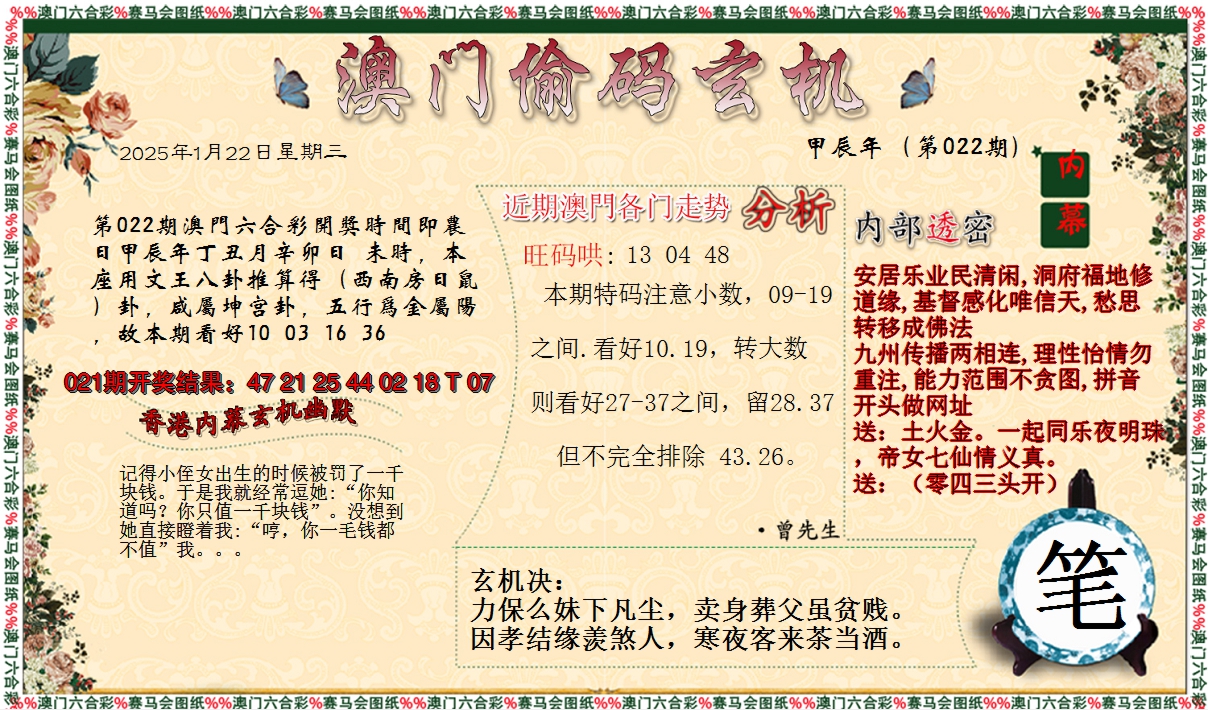 %%澳门六合彩%赛马会图纸%%澳门六合彩%赛马会图纸%%澳门六合彩%赛马会图纸%%澳门六合彩%赛马会图纸%%澳门六合彩%赛马会图纸%%澳门六合彩%赛马会图纸%%
澳门偷码玄机
2025年1月22日星期三
甲辰年（第022期）
内
幕
第022期澳門六合彩開獎時間即農
日甲辰年丁丑月辛卯日 未時，本
座用文王八卦推算得（西南房日鼠
）卦，咸屬坤宫卦，五行爲金屬陽
，故本期看好10 03 16 36
021期开奖结果：47 21 25 44 02 18 T 07
香港内幕玄机幽默
记得小侄女出生的时候被罚了一千
块钱。于是我就经常逗她:“你知
道吗？你只值一千块钱”。没想到
她直接瞪着我:“哼，你一毛钱都
不值”我。。。
近期澳門各门走势 分析
旺码哄: 13 04 48
本期特码注意小数，09-19
之间.看好10.19，转大数
则看好27-37之间，留28.37
但不完全排除 43.26。
·曾先生
内部透密
安居乐业民清闲,洞府福地修
道缘,基督感化唯信天,愁思
转移成佛法
九州传播两相连,理性怡情勿
重注,能力范围不贪图,拼音
开头做网址
送：土火金。一起同乐夜明珠
，帝女七仙情义真。
送：（零四三头开）
玄机决：
力保么妹下凡尘，卖身葬父虽贫贱。
因孝结缘羡煞人，寒夜客来茶当酒。
笔
%%澳门六合彩%赛马会图纸%%澳门六合彩%赛马会图纸%%澳门六合彩%赛马会图纸%%澳门六合彩%赛马会图纸%%澳门六合彩%赛马会图纸%%澳门六合彩%赛马会图纸%%
%%澳门六合彩%赛马会图纸%%澳门六合彩%赛马会图纸%%澳门六合彩%赛马会图纸%%澳门六合彩
%%澳门六合彩%赛马会图纸%%澳门六合彩%赛马会图纸%%澳门六合彩%赛马会图纸%%澳门六合彩